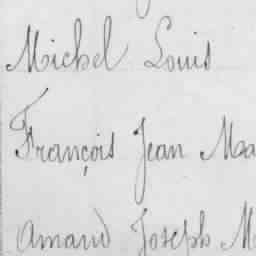 Michel Louis
François Jean Ma
Amand Joseph M